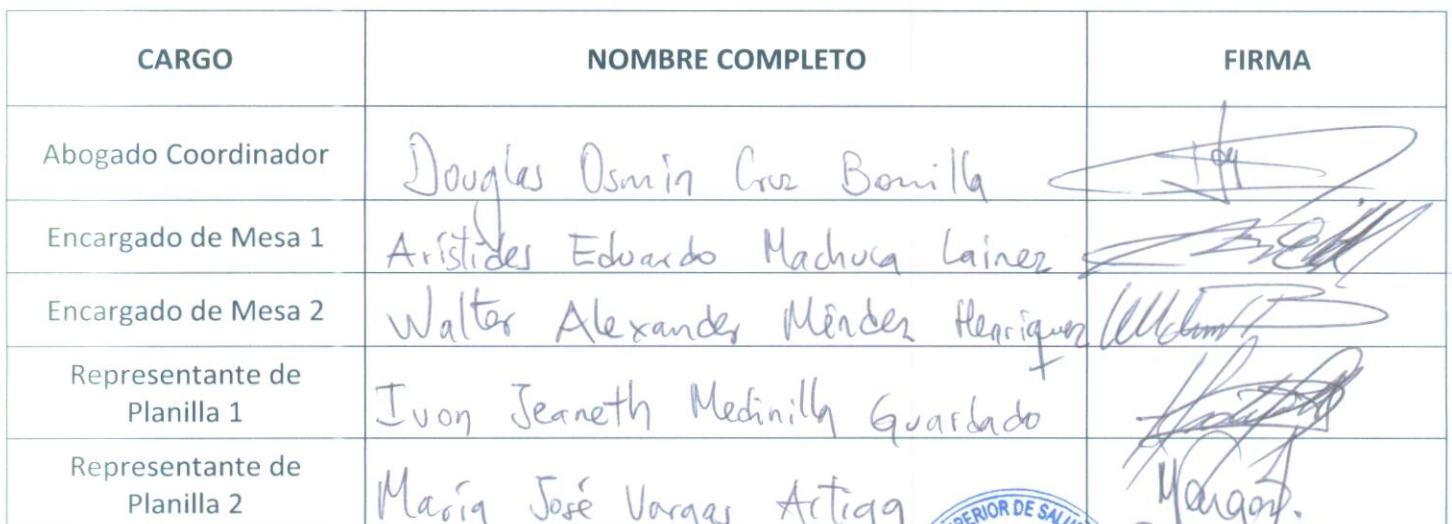 CARGO NOMBRE COMPLETO FIRMA
Abogado Coordinador Douglas Osmín Cruz Bonilla
Encargado de Mesa 1 Arístides Eduardo Machuca Lainez
Encargado de Mesa 2 Walter Alexander Méndez Henríquez
Representante de
Planilla 1 Ivon Jeaneth Medinilla Guardado
Representante de
Planilla 2 María José Vargas Artiga
SUPERIOR DE SALUD